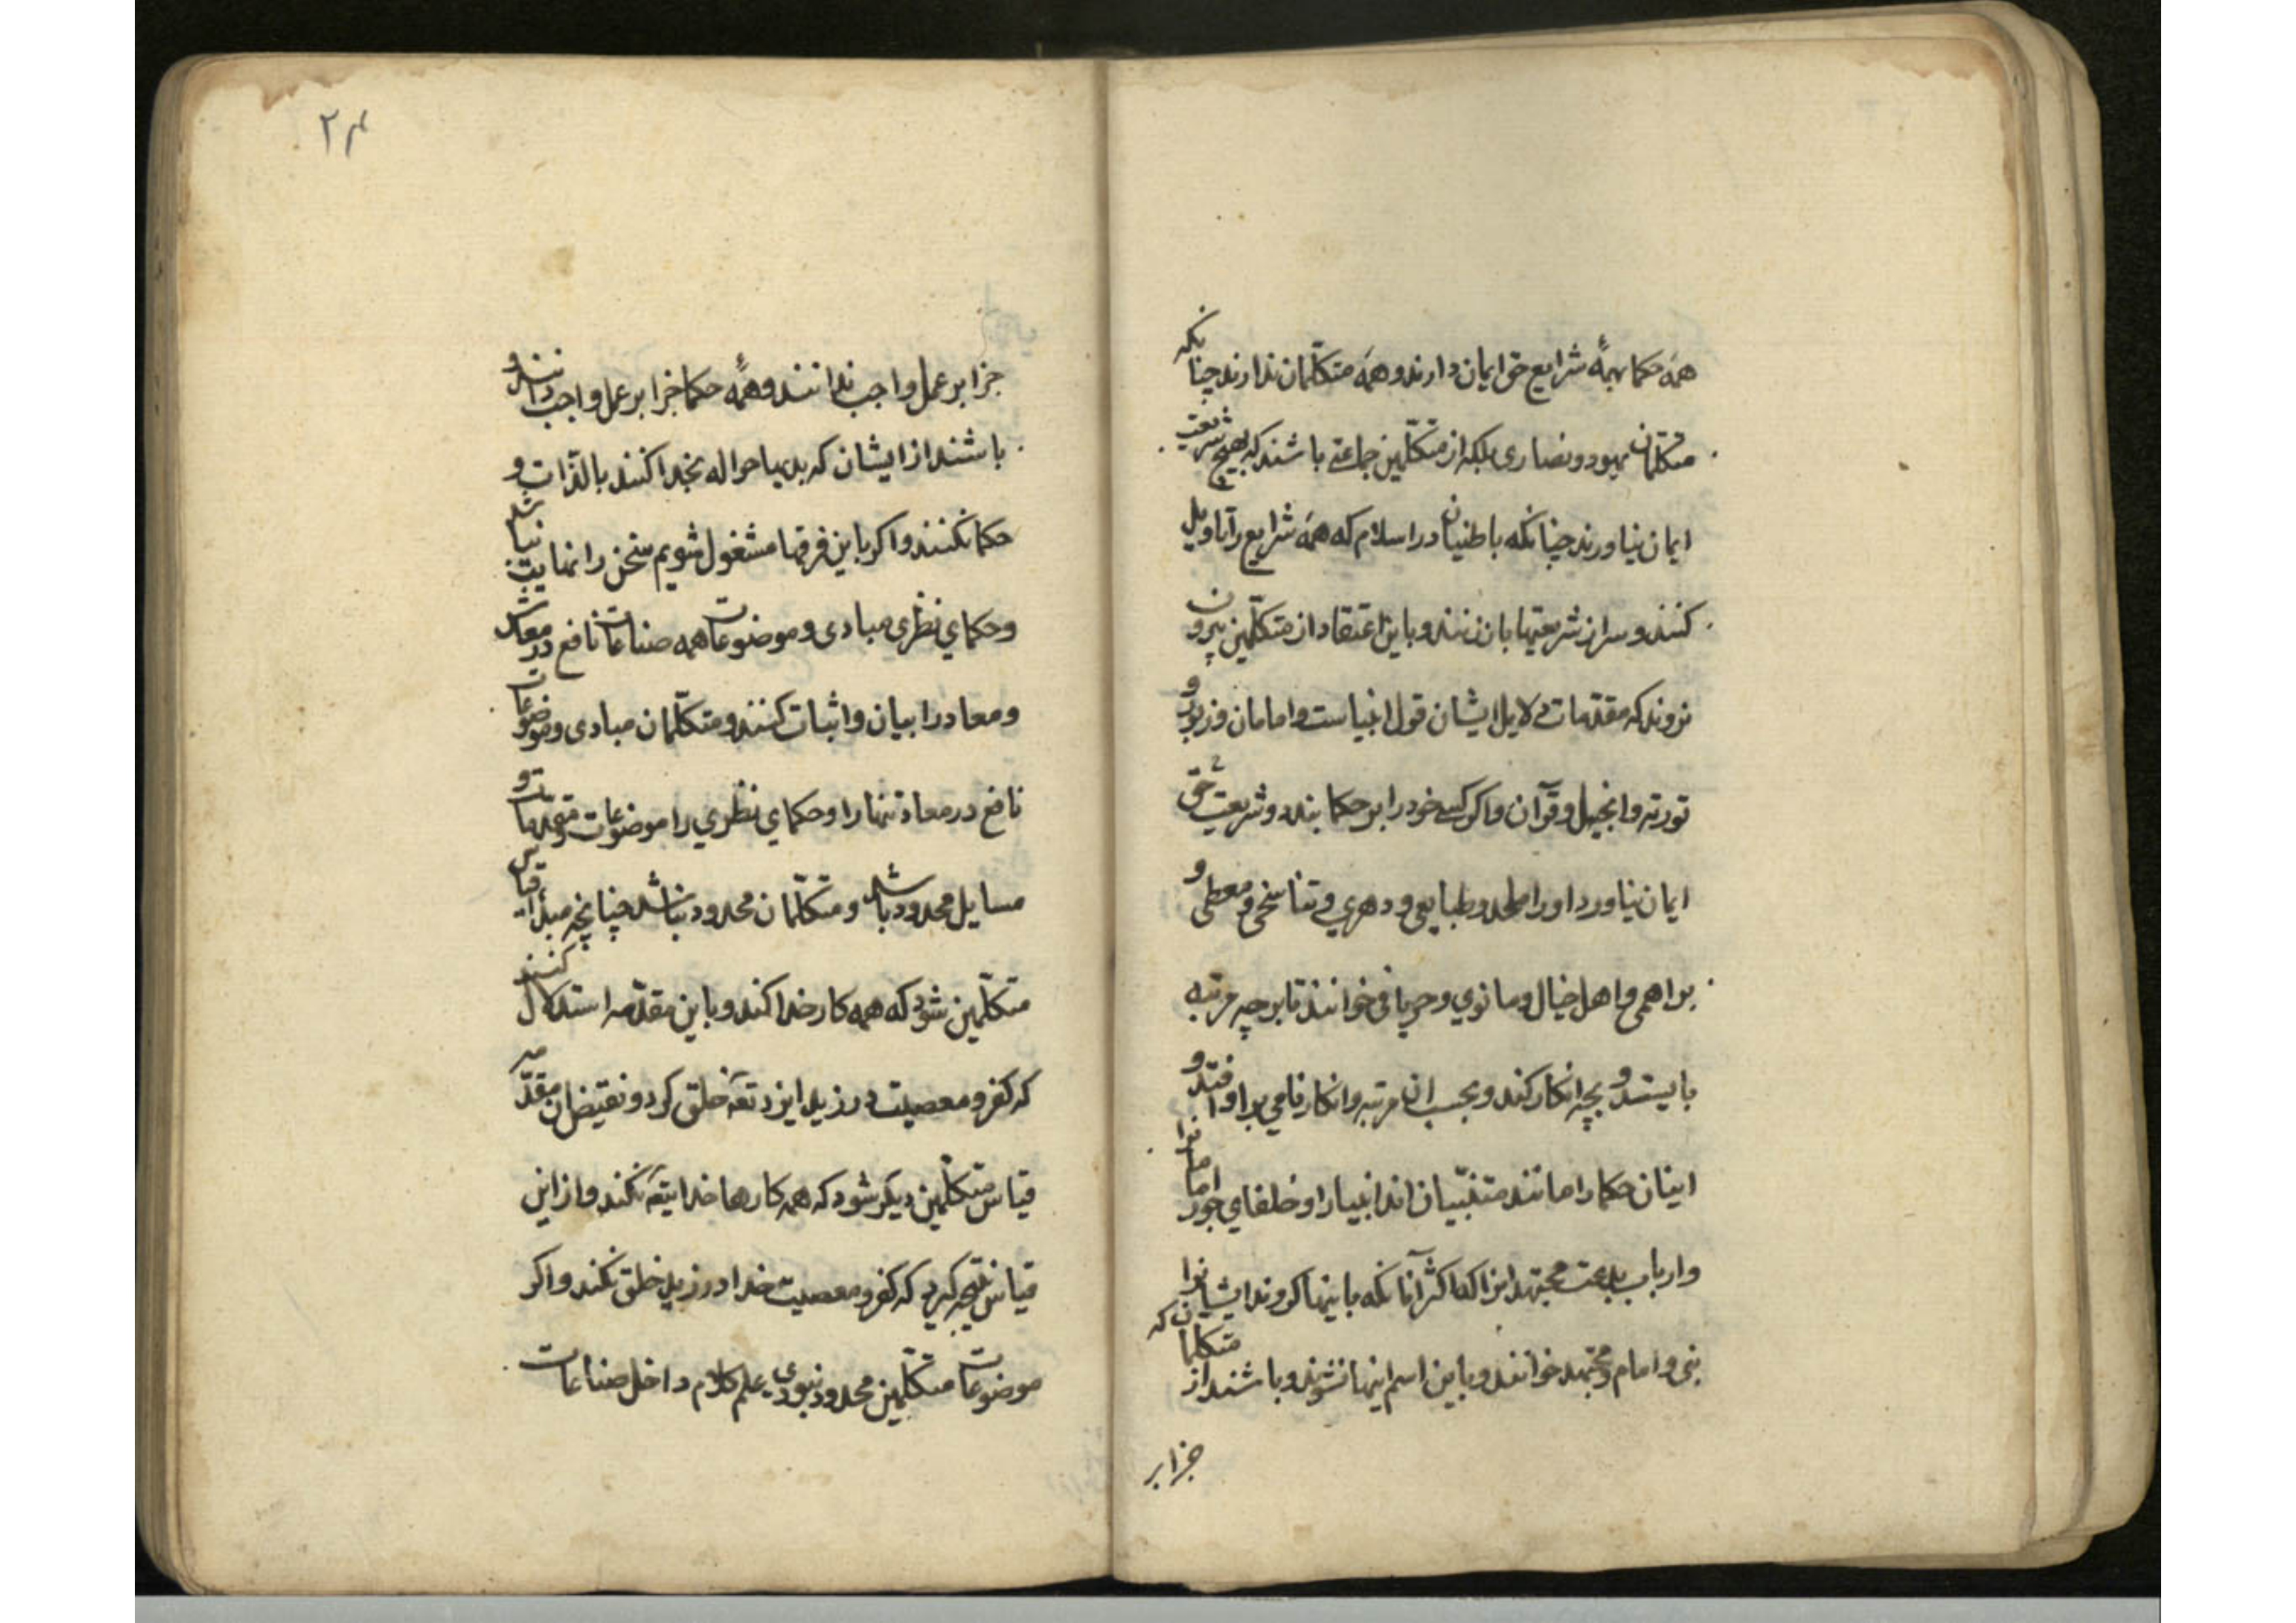 همه حکما بهمهٔ شرایع حق ایمان دارند و همه متکلمان ندارند چنانکه
متکلمان یهود و نصاری بلکه از متکلمین جماعتی باشند که بهیچ شریعت
ایمان نیاورند چنانکه باطنیان در اسلام که همه شرایع را تاویل
کنند و سر از شریعتها باز زنند و باین اعتقاد از متکلمین بیرون
نروند که مقدمات دلایل ایشان قول انبیاست و امامان و زبور و
توریه و انجیل و قرآن و اگر کسی خود را بر حکما بندد و شریعت حق
ایمان نیاورد او را ملحد و طبایعی و دهری و تناسخی و معطلی و
براهمی و اهل خیال و مانوی و خوانند تا بر چه مرتبه
بایستد و بچه انکار کند و بحسب ان مرتبه و انکار نامی بر او افتد و
اینان حکما را مانند متنبیان اند انبیا را و خلفای جور امامانرا
و ارباب بدعت مجتهدانرا الا اکثر آنانکه باینها کروند ایشانرا
نبی و امام و مجتهد خوانند و باین اسم اینها نشوند و باشند از متکلمان که
جزا بر
۲۴
جزا بر عمل واجب ندانند و همهٔ حکما جزا بر عمل واجب دانند و
باشند از ایشان که بدیها حواله بخدا کنند بالذات و
حکما نکنند و اکر باین فرقها مشغول شویم سخن را نهایت نباشد
و حکمای نظری مبادی و موضوعات همه صناعات نافع در معاش
و معاد را بیان و اثبات کنند و متکلمان مبادی و موضوعات
نافع در معاد تنها را و حکمای نظری را موضوعات و مقدمات و
مسایل محدود باشد و متکلمان محدود نباشد چنانچه مبدأ قیاس
متکلمین شود که همه کار خدا کند و باین مقدمه استدلال کنند
که کفر و معصیت در زید ایزد تعه خلق کرد و نقیض ان مقدمه
قیاس متکلمین دیکر شود که همه کارها خدایتعه نکند و از این
قیاس نتیجه کیرد که کفر و معصیت خدا در زید خلق نکند و اکر
موضوعات متکلمین محدود نبودی علم کلام داخل صناعات